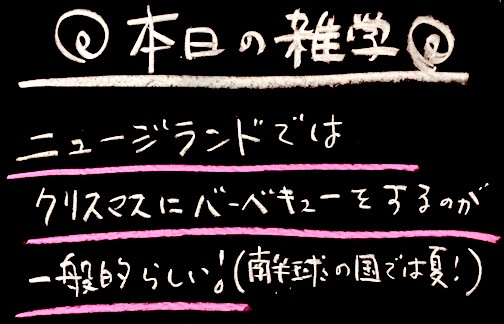 本日の雑学
ニュージランドでは
クリスマスにバーベキューをするのが
一般的らしい!(南半球の国では夏!)